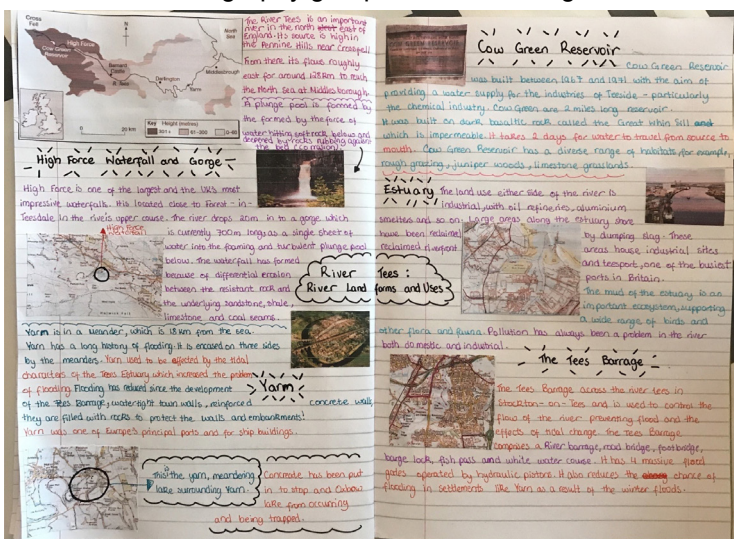 Cross Fell
High Force
Cow Green Reservoir
Barnard Castle
R. Tees
Darlington
Yarm
Middlesborough
North Sea
N
Key Height (metres)
0 20 km
The River Tees is an important
river in the north east of
England. Its source is high in
the Pennine Hills near Crossfell
from there its flows roughly
east for around 128km to reach
the North Sea at Middlesborough.
A plunge pool is formed by
the formed by the force of
water hitting soft rock below and
deepened by rocks rubbing against
the bed
High Force Waterfall and Gorge
High Force is one of the largest and the UK's most
impressive waterfalls. It is located close to Forest - in -
Teesdale in the river's upper course. The river drops 20m in to a gorge which
is currently 700m long as a single sheet of
water into the foaming and turbulent plunge pool
below. The waterfall has formed
because of differential erosion
between the resistant rock and
the underlying sandstone, shale,
limestone and coal seams.
High Force
River Tees :
River Land forms and Uses
Yarm is in a meander, which is 18km from the sea.
Yarm has a long history of flooding. It is encased on three sides
by the meanders. Yarm used to be affected by the tidal
characters of the Tees Estuary which increased the problem
of flooding. Flooding has reduced since the development
Yarm
of the Tees Barrage, watertight town walls, reinforced concrete walls
they are filled with rocks to protect the walls and embankments!
Yarm was one of Europe's principal ports and for ship buildings.
this is the yarm, meandering
lake surrounding Yarm.
Concreate has been put
in to stop and oxbow
lake from occurring
and being trapped.
Cow Green Reservoir
Cow Green Reservoir
was built between 1967 and 1971 with the aim of
providing a water supply for the industries of Teeside - particularly
the chemical industry. Cow Green are 2 miles long reservoir.
It was built on dark basaltic rock called the Great Whin Sill and
which is impermeable. It takes 2 days for water to travel from source to
mouth. Cow Green Reservoir has a diverse range of habitats, for example,
rough grazing, juniper woods, limestone grasslands.
Estuary
The land use either side of the river is
industrial, with oil refineries, aluminium
smelters and so on. Large areas along the estuary shore
have been reclaimed by dumping slag. These
reclaimed riverfront areas house industrial sites
and teesport, one of the busiest
ports in Britain.
The mud of the estuary is an
important ecosystem, supporting
a wide range of birds and
other flora and fauna. Pollution has always been a problem in the river
both domestic and industrial.
The Tees Barrage
The Tees Barrage across the river tees in
Stockton - on - Tees and is used to control the
flow of the river preventing flood and the
effects of tidal change. The Tees Barrage
comprises a River barrage, road bridge, footbridge,
barge lock, fish pass and white water course. It has 4 massive flood
gates operated by hydraulic pistons. It also reduces the chance of
flooding in settlements like Yarm as a result of the winter floods.